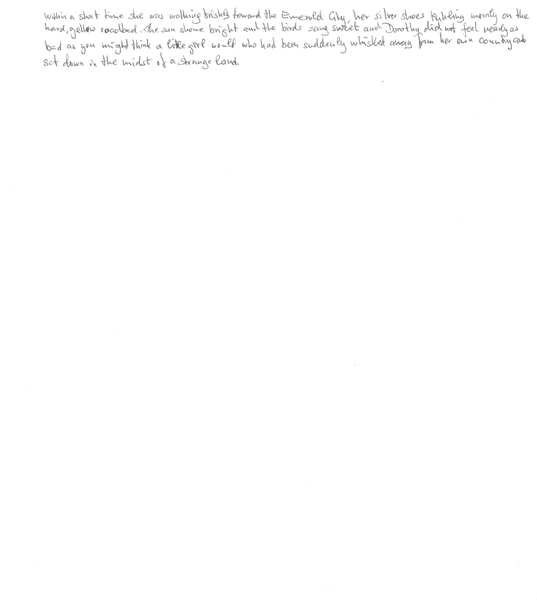 within a short time she was walking briskly toward the Emerald City, her silver shoes tinkling merrily on the
hard, yellow roadbed. The sun shone bright and the birds sang sweet and Dorothy did not feel nearly as
bad as you might think a little girl would who had been suddenly whisked away from her own country and
set down in the midst of a strange land.